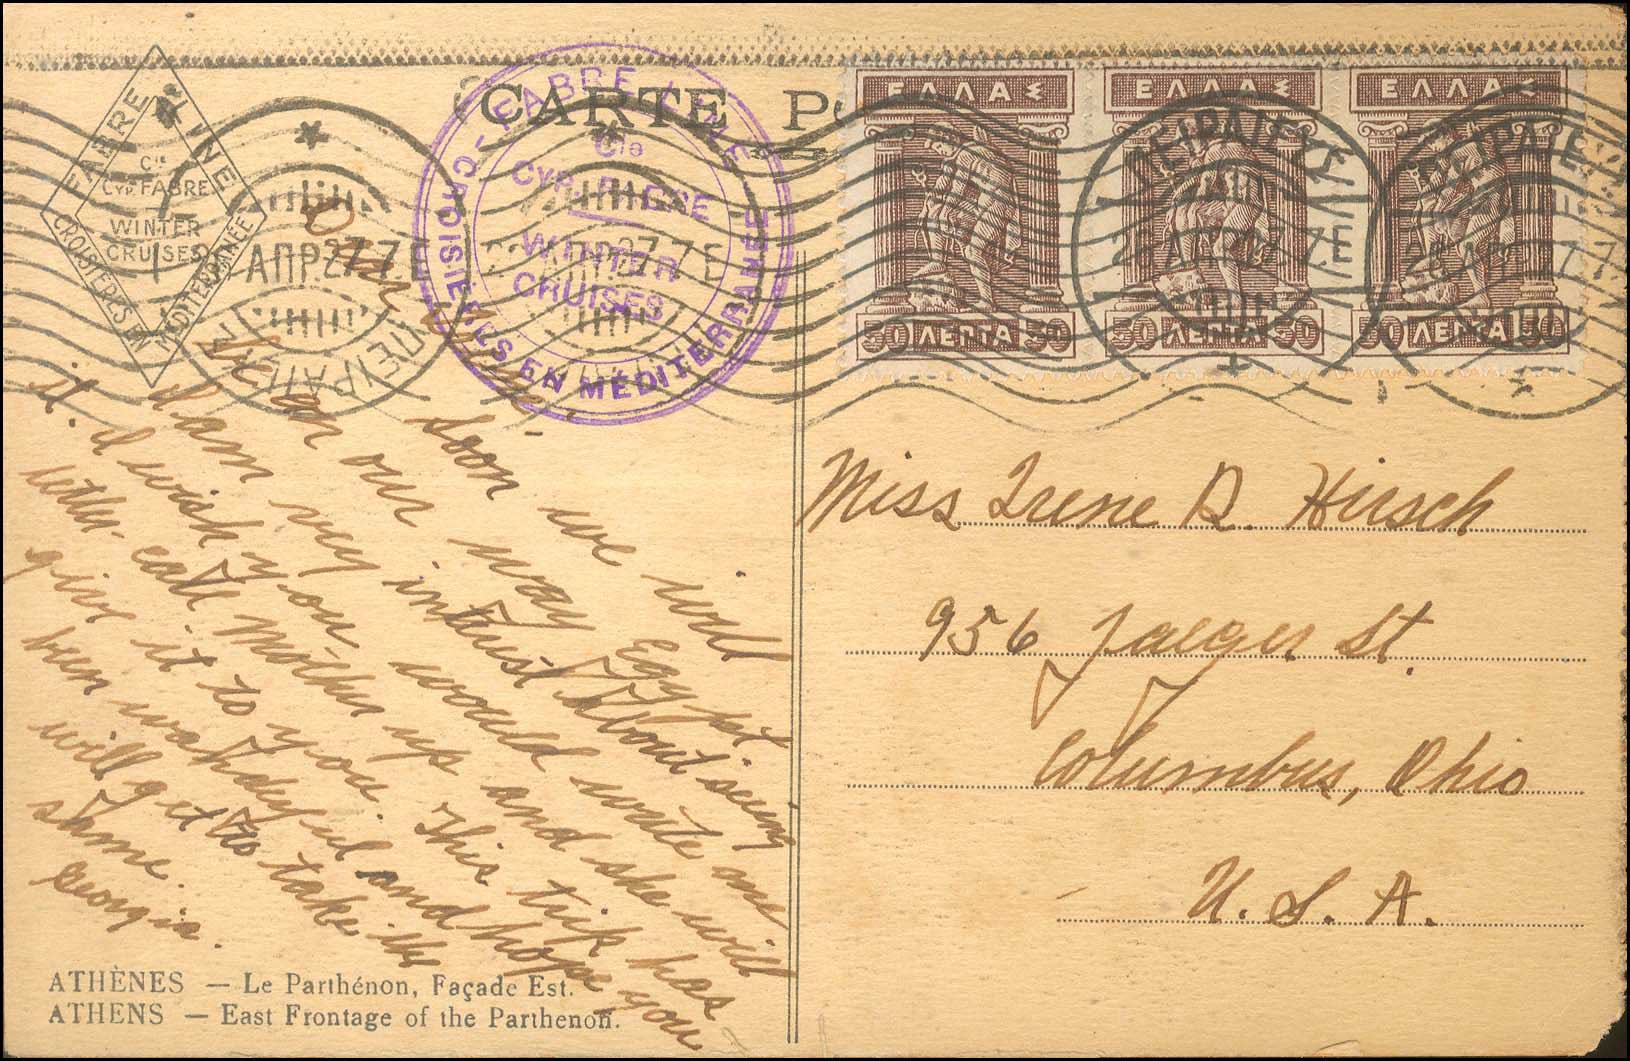 CARTE
FABRE LINE
Cie
Cyp. FABRE
WINTER
CRUISES
CROISIERES EN MEDITERRANEE
FABRE LINE
Cie
Cyp. FABRE
WINTER
CRUISES
CROISIERES EN MÉDITERRANÉE
ΑΠΡ. 27 7 Ε
ΠΕΙΡΑΙΕΥΣ
ΕΛΛΑΣ ΕΛΛΑΣ ΕΛΛΑΣ
50 ΛΕΠΤΑ 50 50 ΛΕΠΤΑ 50 50 ΛΕΠΤΑ 50
Dear Irene:-
Soon we will
be on our way Egypt.
I am very intrest about seeing
it. I wish you would write me
letter. Call Mother up and she will
give it to you. This trip has
been wahdeful and hope you
will get to take the
shame.
Georgia.
Miss Irene D. Hirsch
956 Jaeger St.
Columbus, Ohio
U. S. A.
ATHÈNES — Le Parthénon, Façade Est.
ATHENS — East Frontage of the Parthenon.